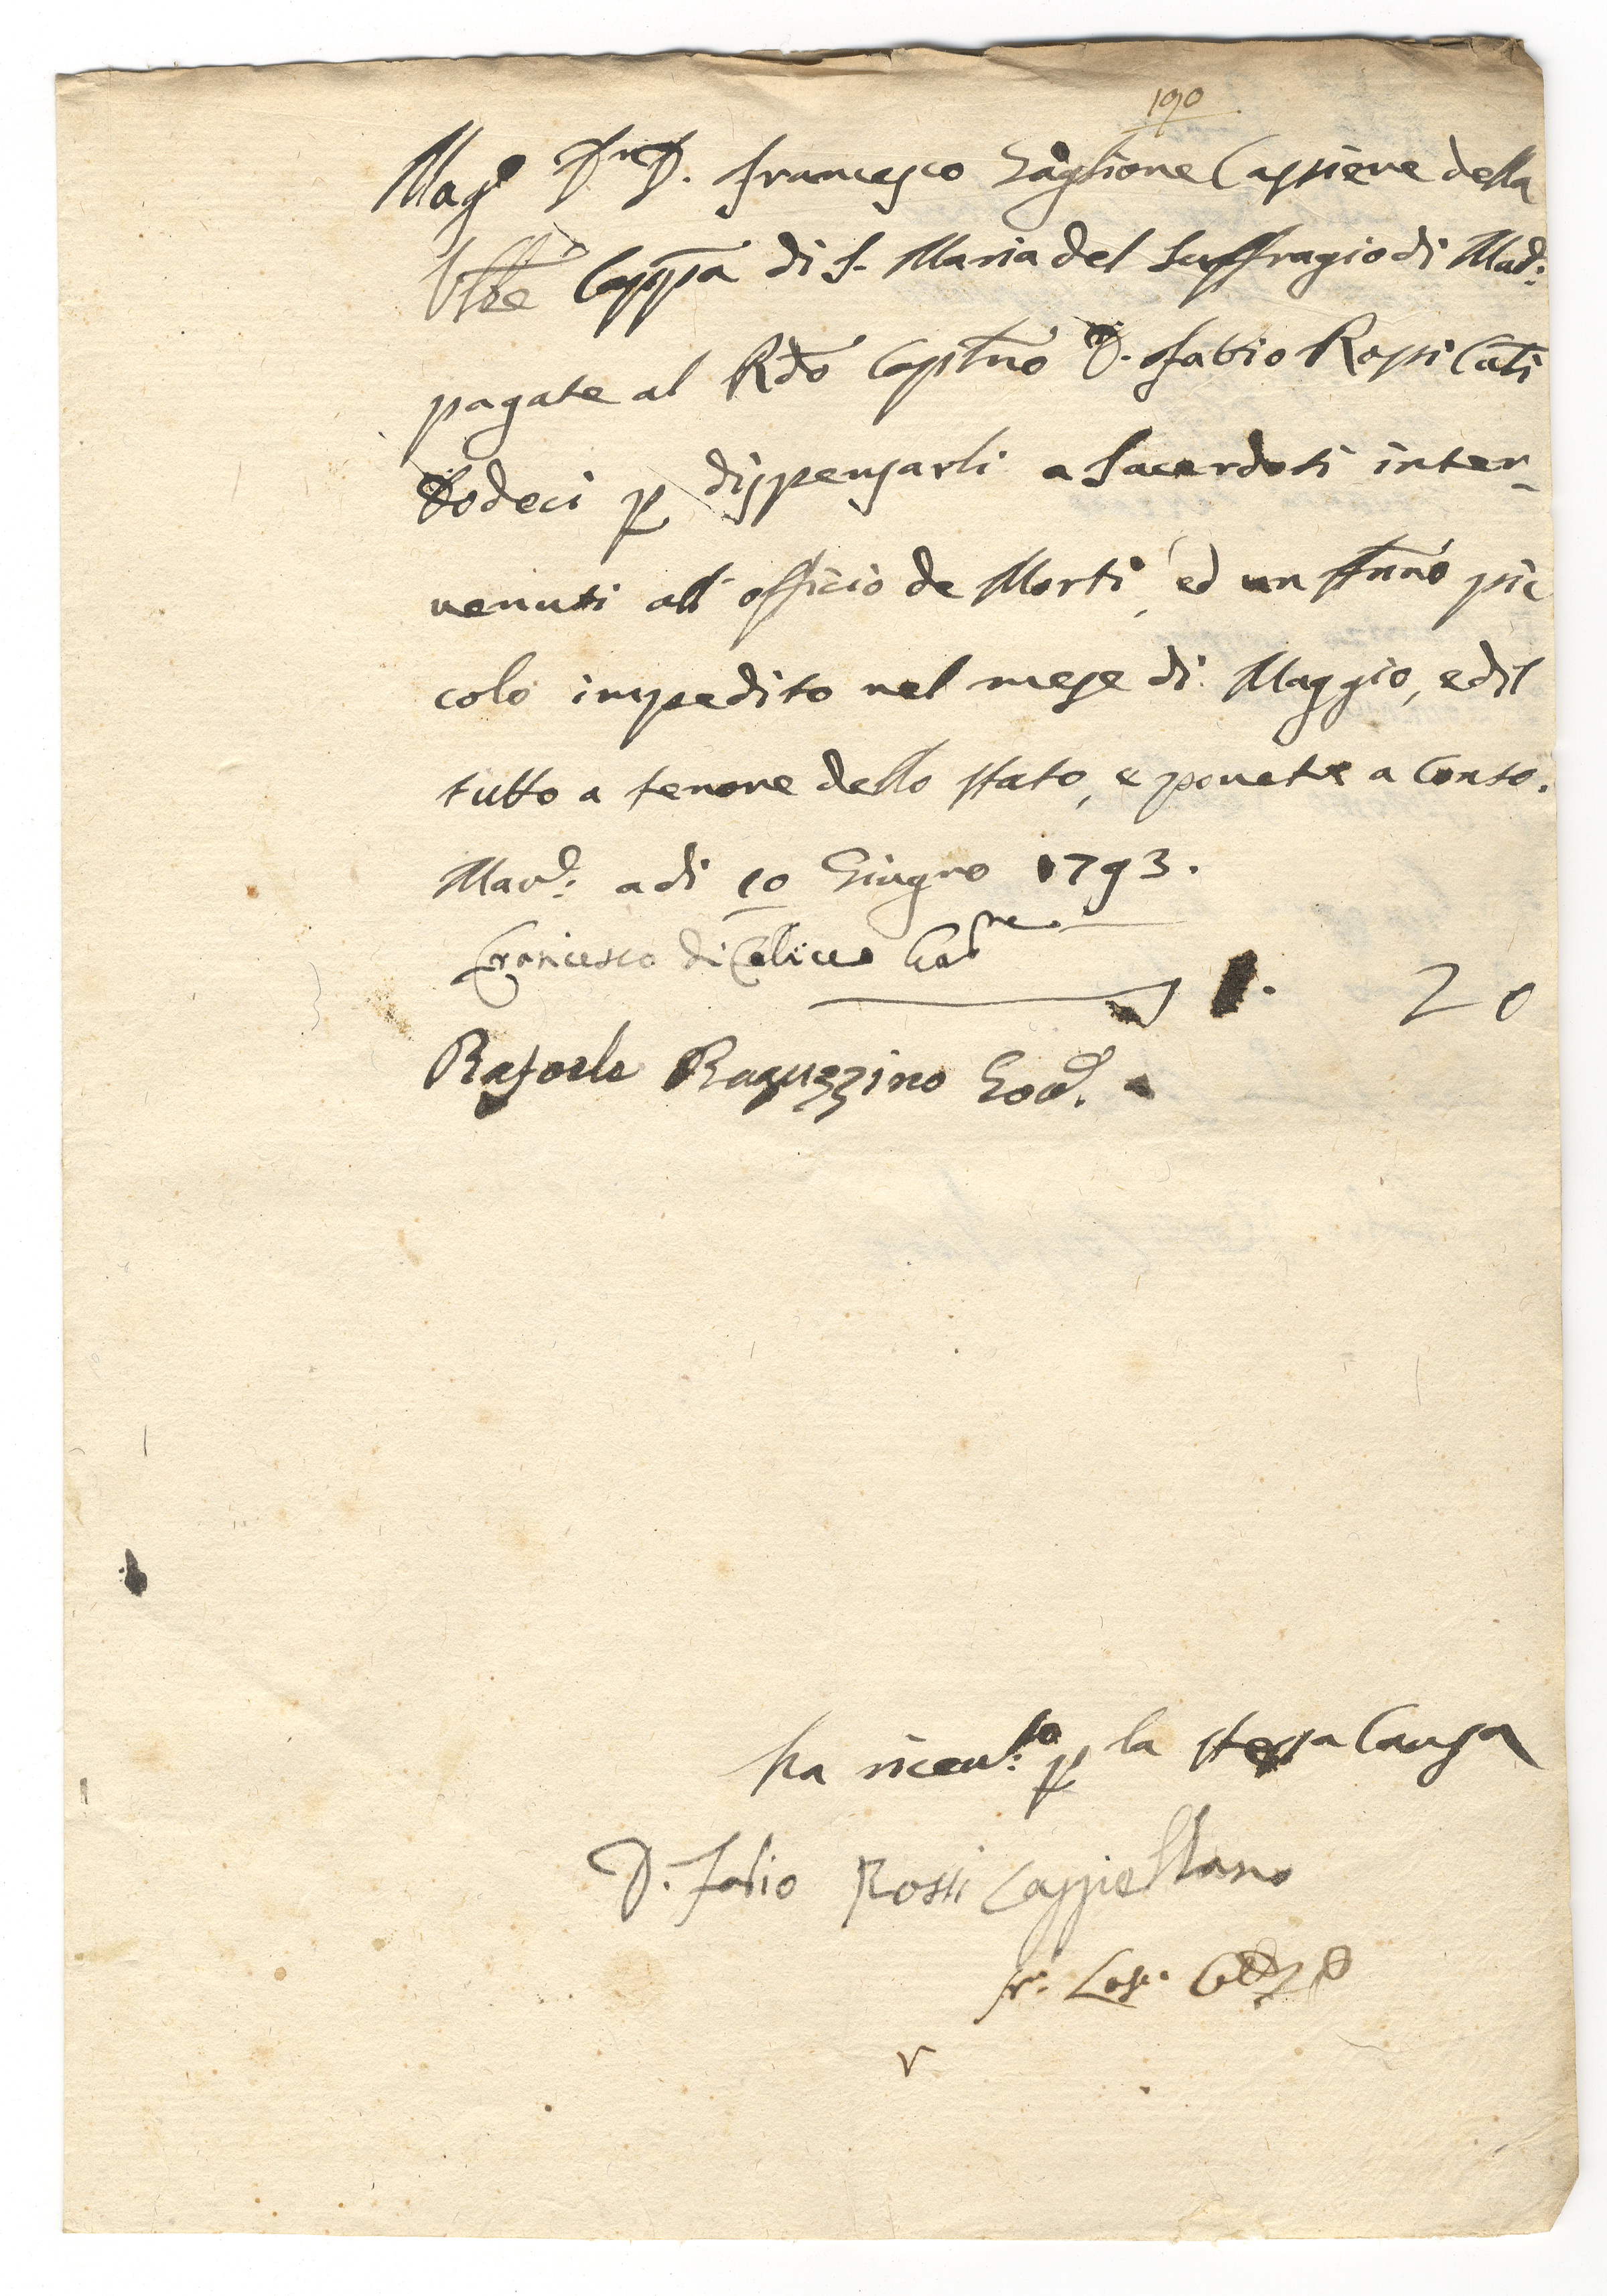 190
Mag.o Dr. D. Francesco Gaglione Cassiere della
Capp.a di S. Maria del Suffragio di Mad:
pagate al R.do D. Fabio Rossi
Dodeci p dispensarli a Sacerdoti inter-
venuti all'officio de Morti, ed un pic
colo impedito nel mese di Maggio, ed il
tutto a tenore dello stato, e ponete a Conto.
Mad.: a di 10 Giugno 1793.
Francesco di
20
Rafaele Raguzzino Gov.
ha riceu:to p la stessa Causa
D. Fabio Rossi Cappellano